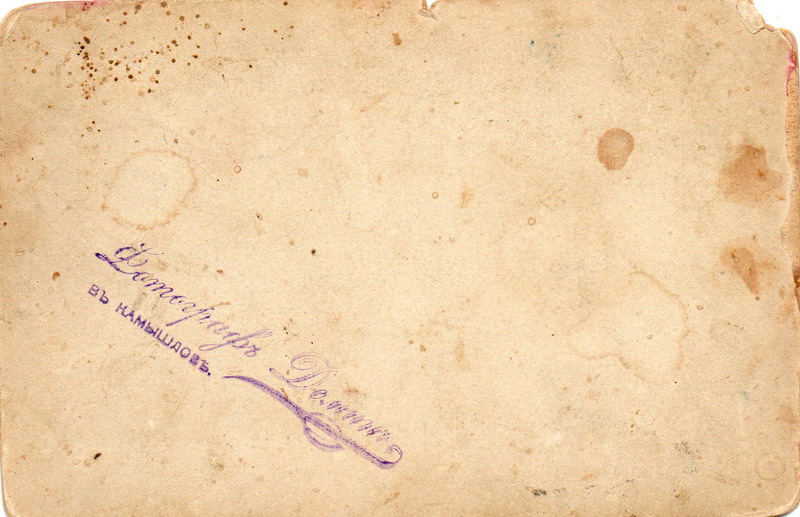 Фотографъ Деминъ
ВЪ КАМЫШЛОВѢ.